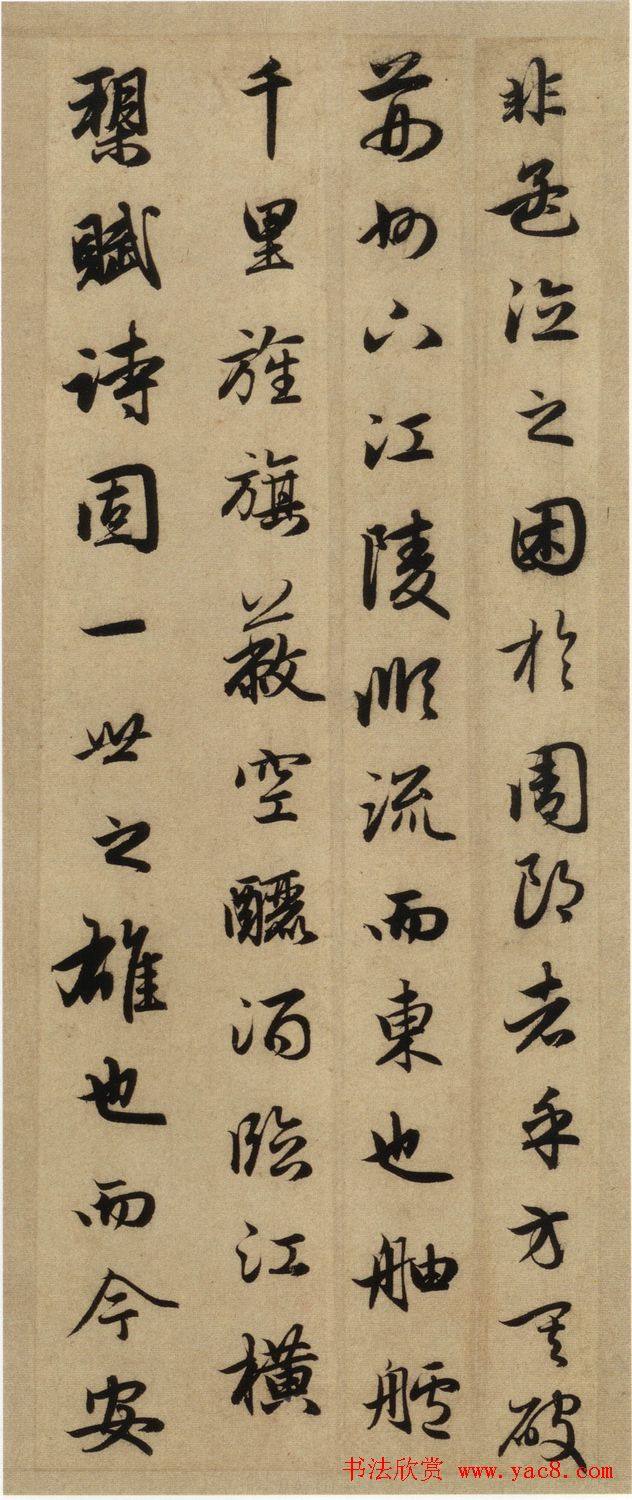 非孟德之困於周郎者乎方其破
荊州下江陵順流而東也舳艫
千里旌旗蔽空釃酒臨江橫
槊賦詩固一世之雄也而今安
书法欣赏 www.yac8.com